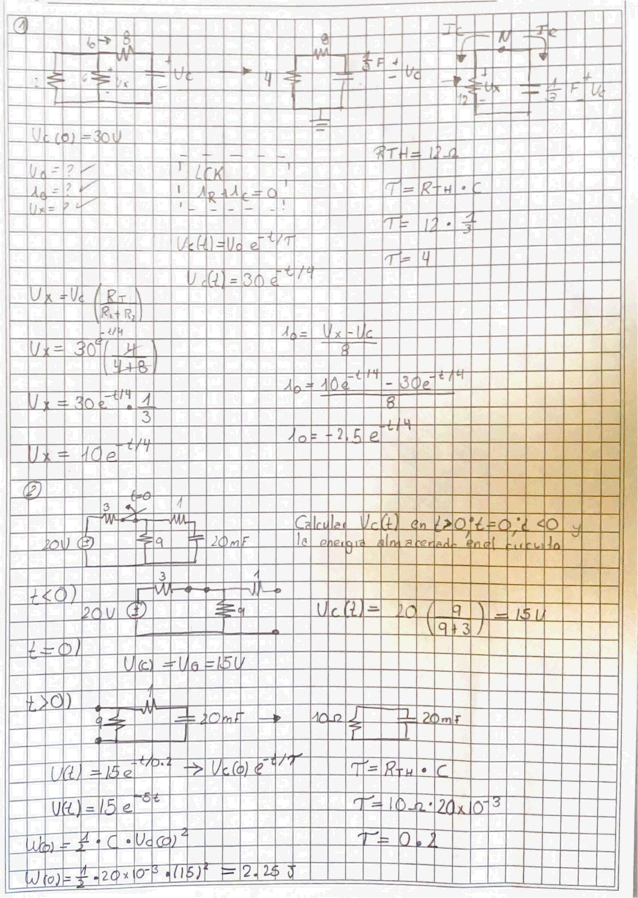 ①
io → 8
+ Vx -
+ Vc -
4
8
1/3 F + Vc -
Ic N Ic
12 + Vx -
1/3 F + Vc -
Vc(0) = 30V
V0 = ? ✓
i0 = ? ✓
Vx = ? ✓
LCK
iR + iC = 0
RTH = 12Ω
T = RTH • C
T = 12 • 1/3
T = 4
Vc(t) = V0 e^-t/T
Vc(t) = 30 e^-t/4
Vx = Vc (RT / R1+R2)
Vx = 30 e^-t/4 (4 / 4+8)
Vx = 30 e^-t/4 • 1/3
Vx = 10 e^-t/4
i0 = Vx - Vc / 8
i0 = 10e^-t/4 - 30e^-t/4 / 8
i0 = -2.5 e^-t/4
②
t=0
3 1
20V 9 20mF
Calcular Vc(t) en t>0; t=0; t<0 y
la energia almacenada en el circuito
t<0)
3 1
20V 9
Vc(t) = 20 (9 / 9+3) = 15V
t=0)
V(c) = V0 = 15V
t>0)
1
9 20mF → 10Ω 20mF
V(t) = 15 e^-t/0.2 → Vc(0) e^-t/T
V(t) = 15 e^-5t
T = RTH • C
T = 10Ω • 20x10^-3
T = 0.2
W(0) = 1/2 • C • Vc(0)^2
W(0) = 1/2 • 20x10^-3 • (15)^2 = 2.25 J